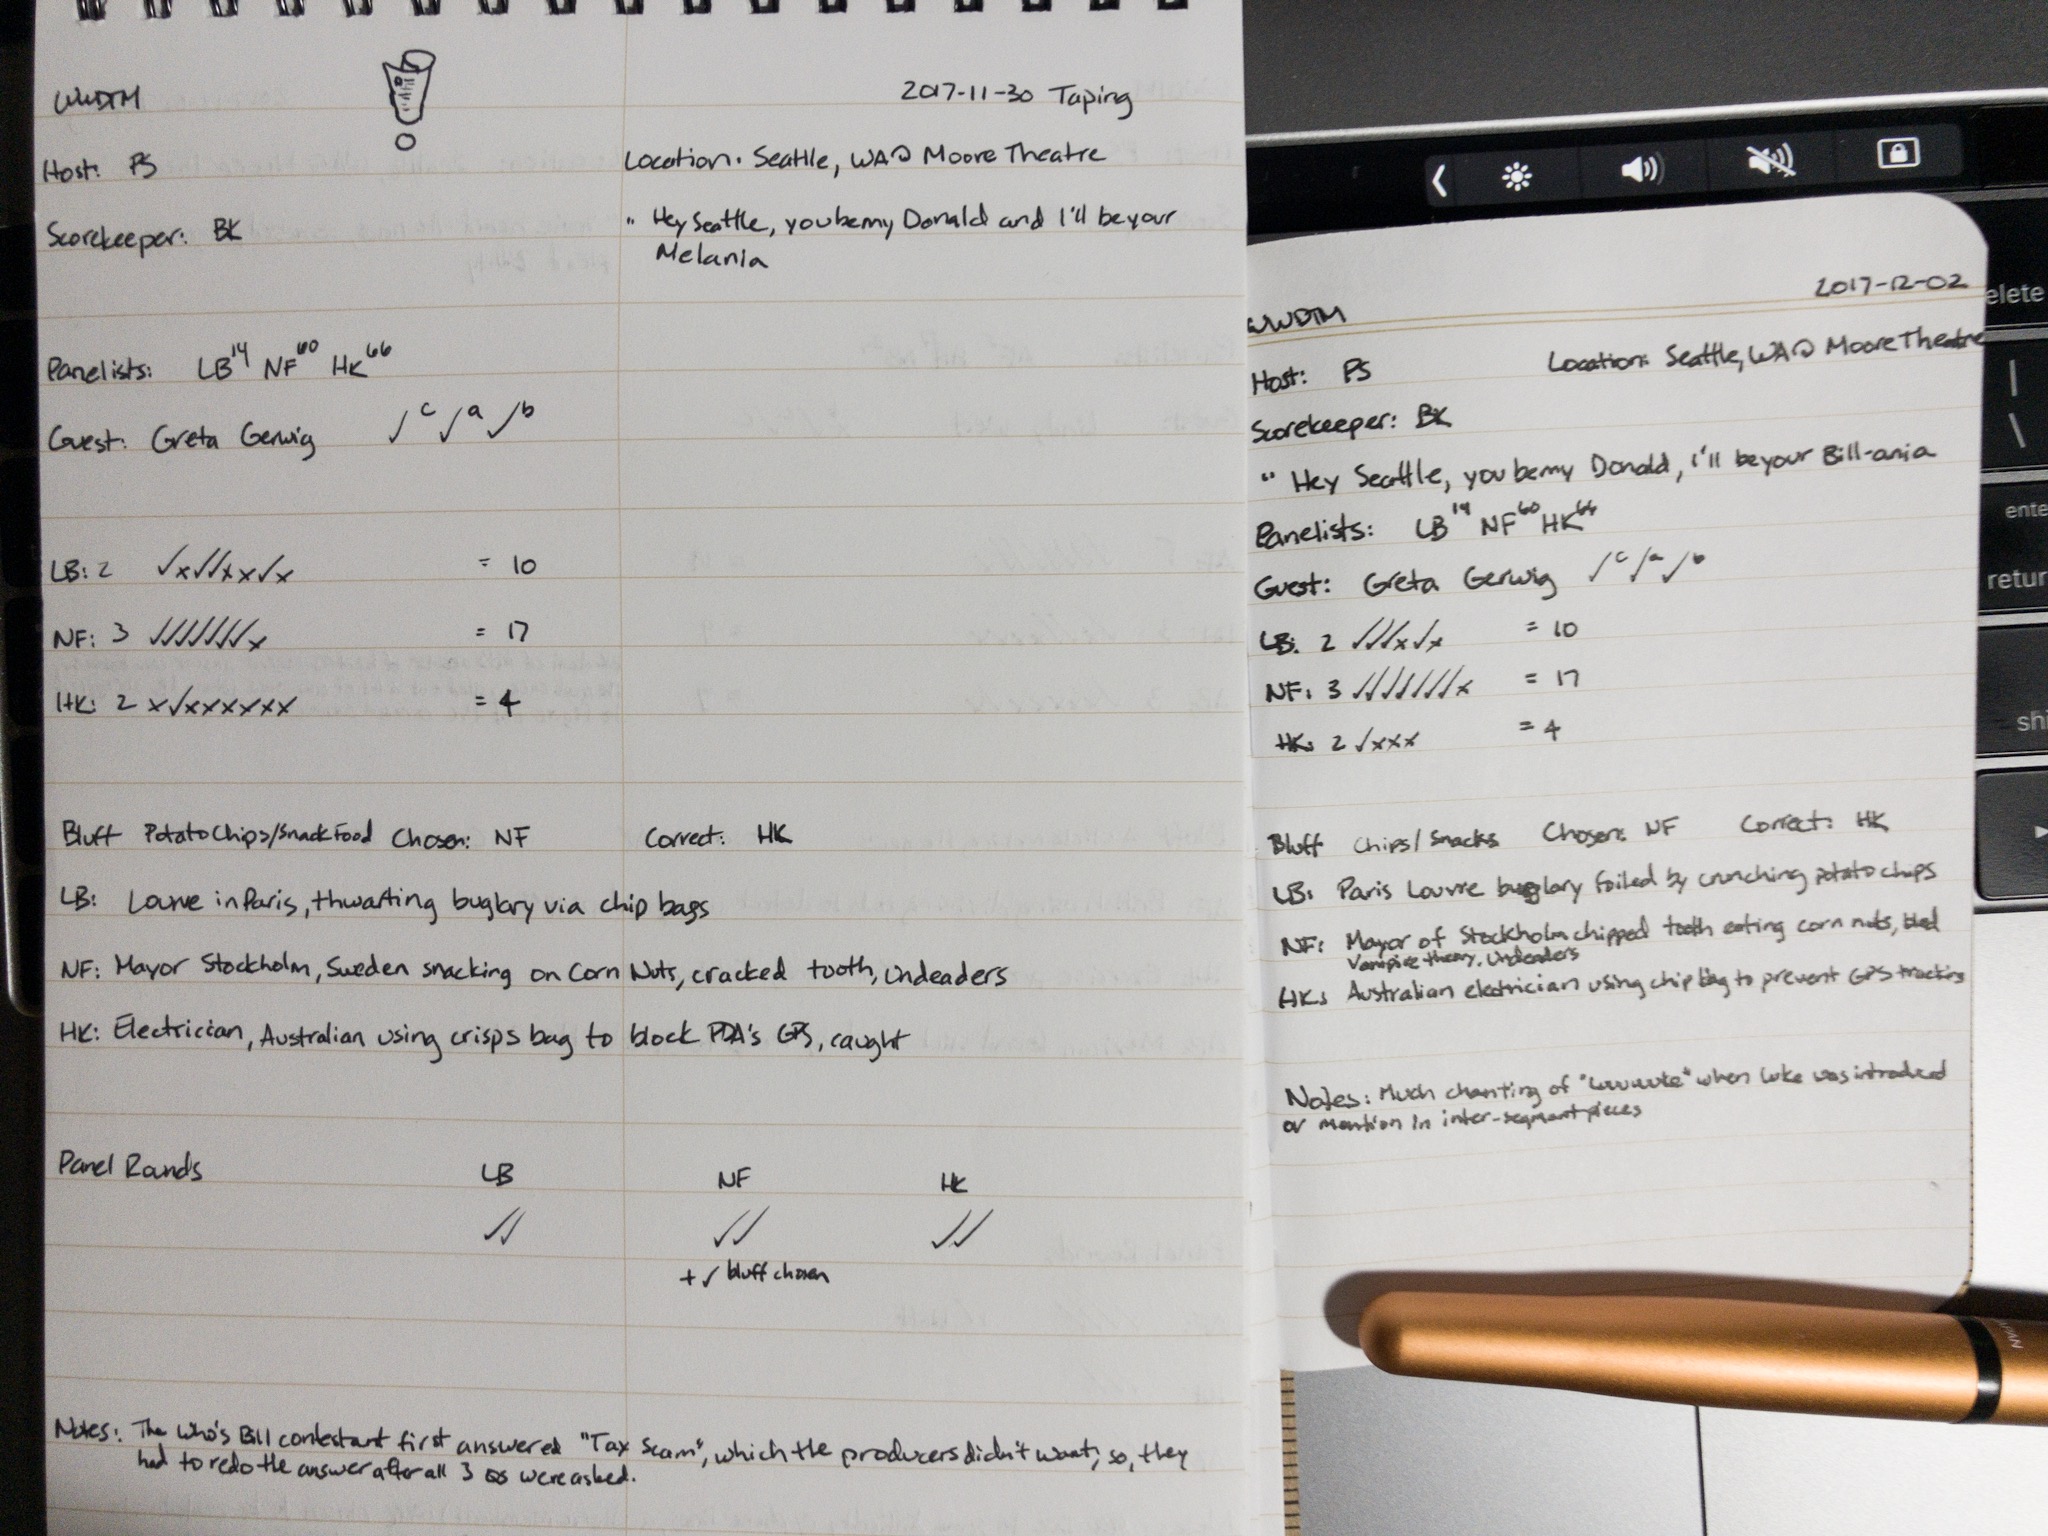 WWDTM
2017-11-30 Taping
Host: PS
Location: Seattle, WA @ Moore Theatre
Scorekeeper: BK
" Hey Seattle, you be my Donald and I'll be your
Melania
Panelists: LB14 NF60 HK66
Guest: Greta Gerwig ✓c ✓a ✓b
LB: 2 ✓x✓✓xx✓x = 10
NF: 3 ✓✓✓✓✓✓✓x = 17
HK: 2 x✓xxxxxx = 4
Bluff Potato Chips/Snack Food Chosen: NF Correct: HK
LB: Louvre in Paris, thwarting buglary via chip bags
NF: Mayor Stockholm, Sweden snacking on Corn Nuts, cracked tooth, Undeaders
HK: Electrician, Australian using crisps bag to block PDA's GPS, caught
Panel Rounds LB NF HK
✓✓ ✓✓ ✓✓
+ ✓ bluff chosen
Notes: The Who's Bill contestant first answered "Tax Scam", which the producers didn't want, so, they
had to redo the answer after all 3 Qs were asked.
WWDTM
2017-12-02
Host: PS
Location: Seattle, WA @ Moore Theatre
Scorekeeper: BK
" Hey Seattle, you be my Donald, I'll be your Bill-ania
Panelists: LB14 NF60 HK66
Guest: Greta Gerwig ✓c ✓a ✓b
LB: 2 ✓✓✓x✓x = 10
NF: 3 ✓✓✓✓✓✓✓x = 17
HK: 2 ✓xxx = 4
Bluff Chips/Snacks Chosen: NF Correct: HK
LB: Paris Louvre buglary foiled by crunching potato chips
NF: Mayor of Stockholm chipped tooth eating corn nuts, bled
Vampire theory, Undeaders
HK: Australian electrician using chip bag to prevent GPS tracking
Notes: Much chanting of "Luuuuuke" when Luke was introduced
or mention in inter-segment pieces
elete
|
\
ente
return
shi